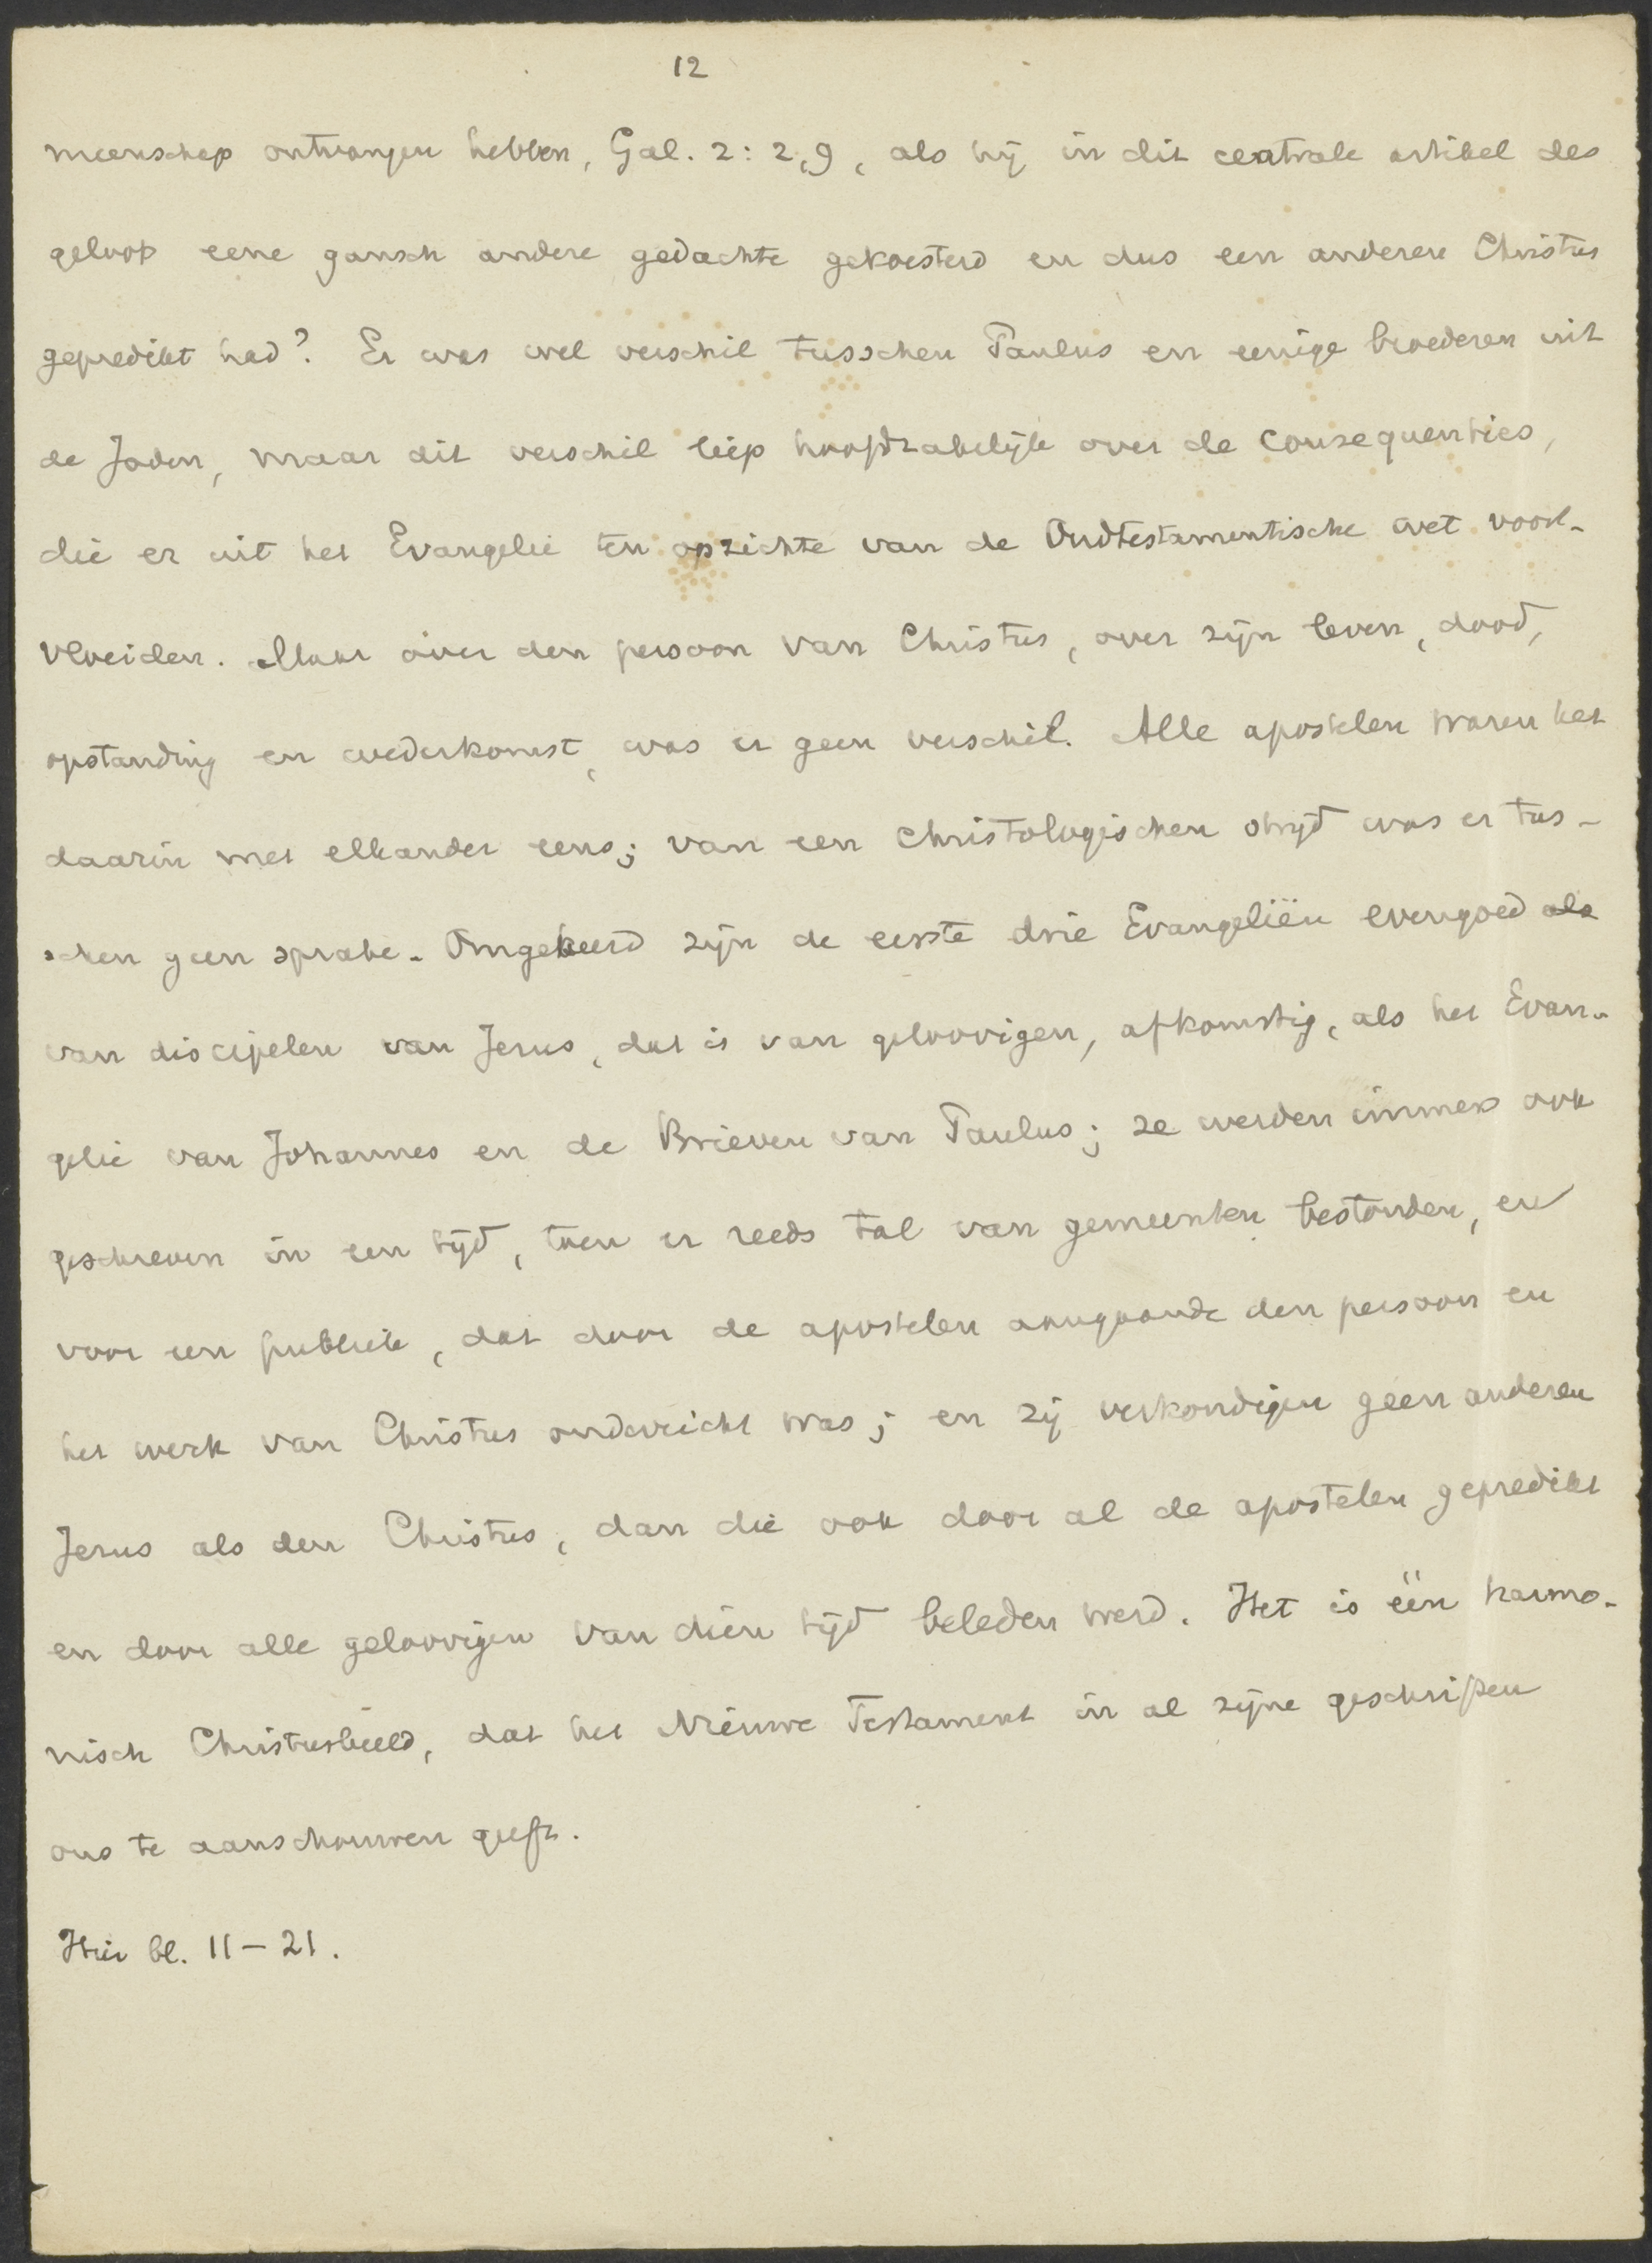 12
meenschap ontvangen hebben, Gal. 2:2,9, als hij in dit centrale artikel des
geloofs eene gansch andere gedachte gekoesterd en dus een anderen Christus
gepredikt had? Er was wel verschil tusschen Paulus en eenige broederen uit
de Joden, maar dit verschil liep hoofdzakelijk over de consequenties,
die er uit het Evangelie ten opzichte van de Oudtestamentische wet voort-
vloeiden. Maar over den persoon van Christus, over zijn leven, dood,
opstanding en wederkomst, was er geen verschil. Alle apostelen waren het
daarin met elkander eens; van een christologischen strijd was er tus-
schen geen sprake. Omgekeerd zijn de eerste drie Evangeliën evengoed als
van discipelen van Jezus, dat is van geloovigen, afkomstig, als het Evan-
gelie van Johannes en de Brieven van Paulus; ze werden immers ook
geschreven in een tijd, toen er reeds tal van gemeenten bestonden, en
voor een publiek, dat door de apostelen aangaande den persoon en
het werk van Christus onderricht was; en zij verkondigen geen anderen
Jezus als den Christus, dan die ook door al de apostelen gepredikt
en door alle geloovigen van dien tijd beleden werd. Het is één harmo-
nisch Christusbeeld, dat het Nieuwe Testament in al zijne geschriften
ons te aanschouwen geeft.
Hier bl. 11-21.